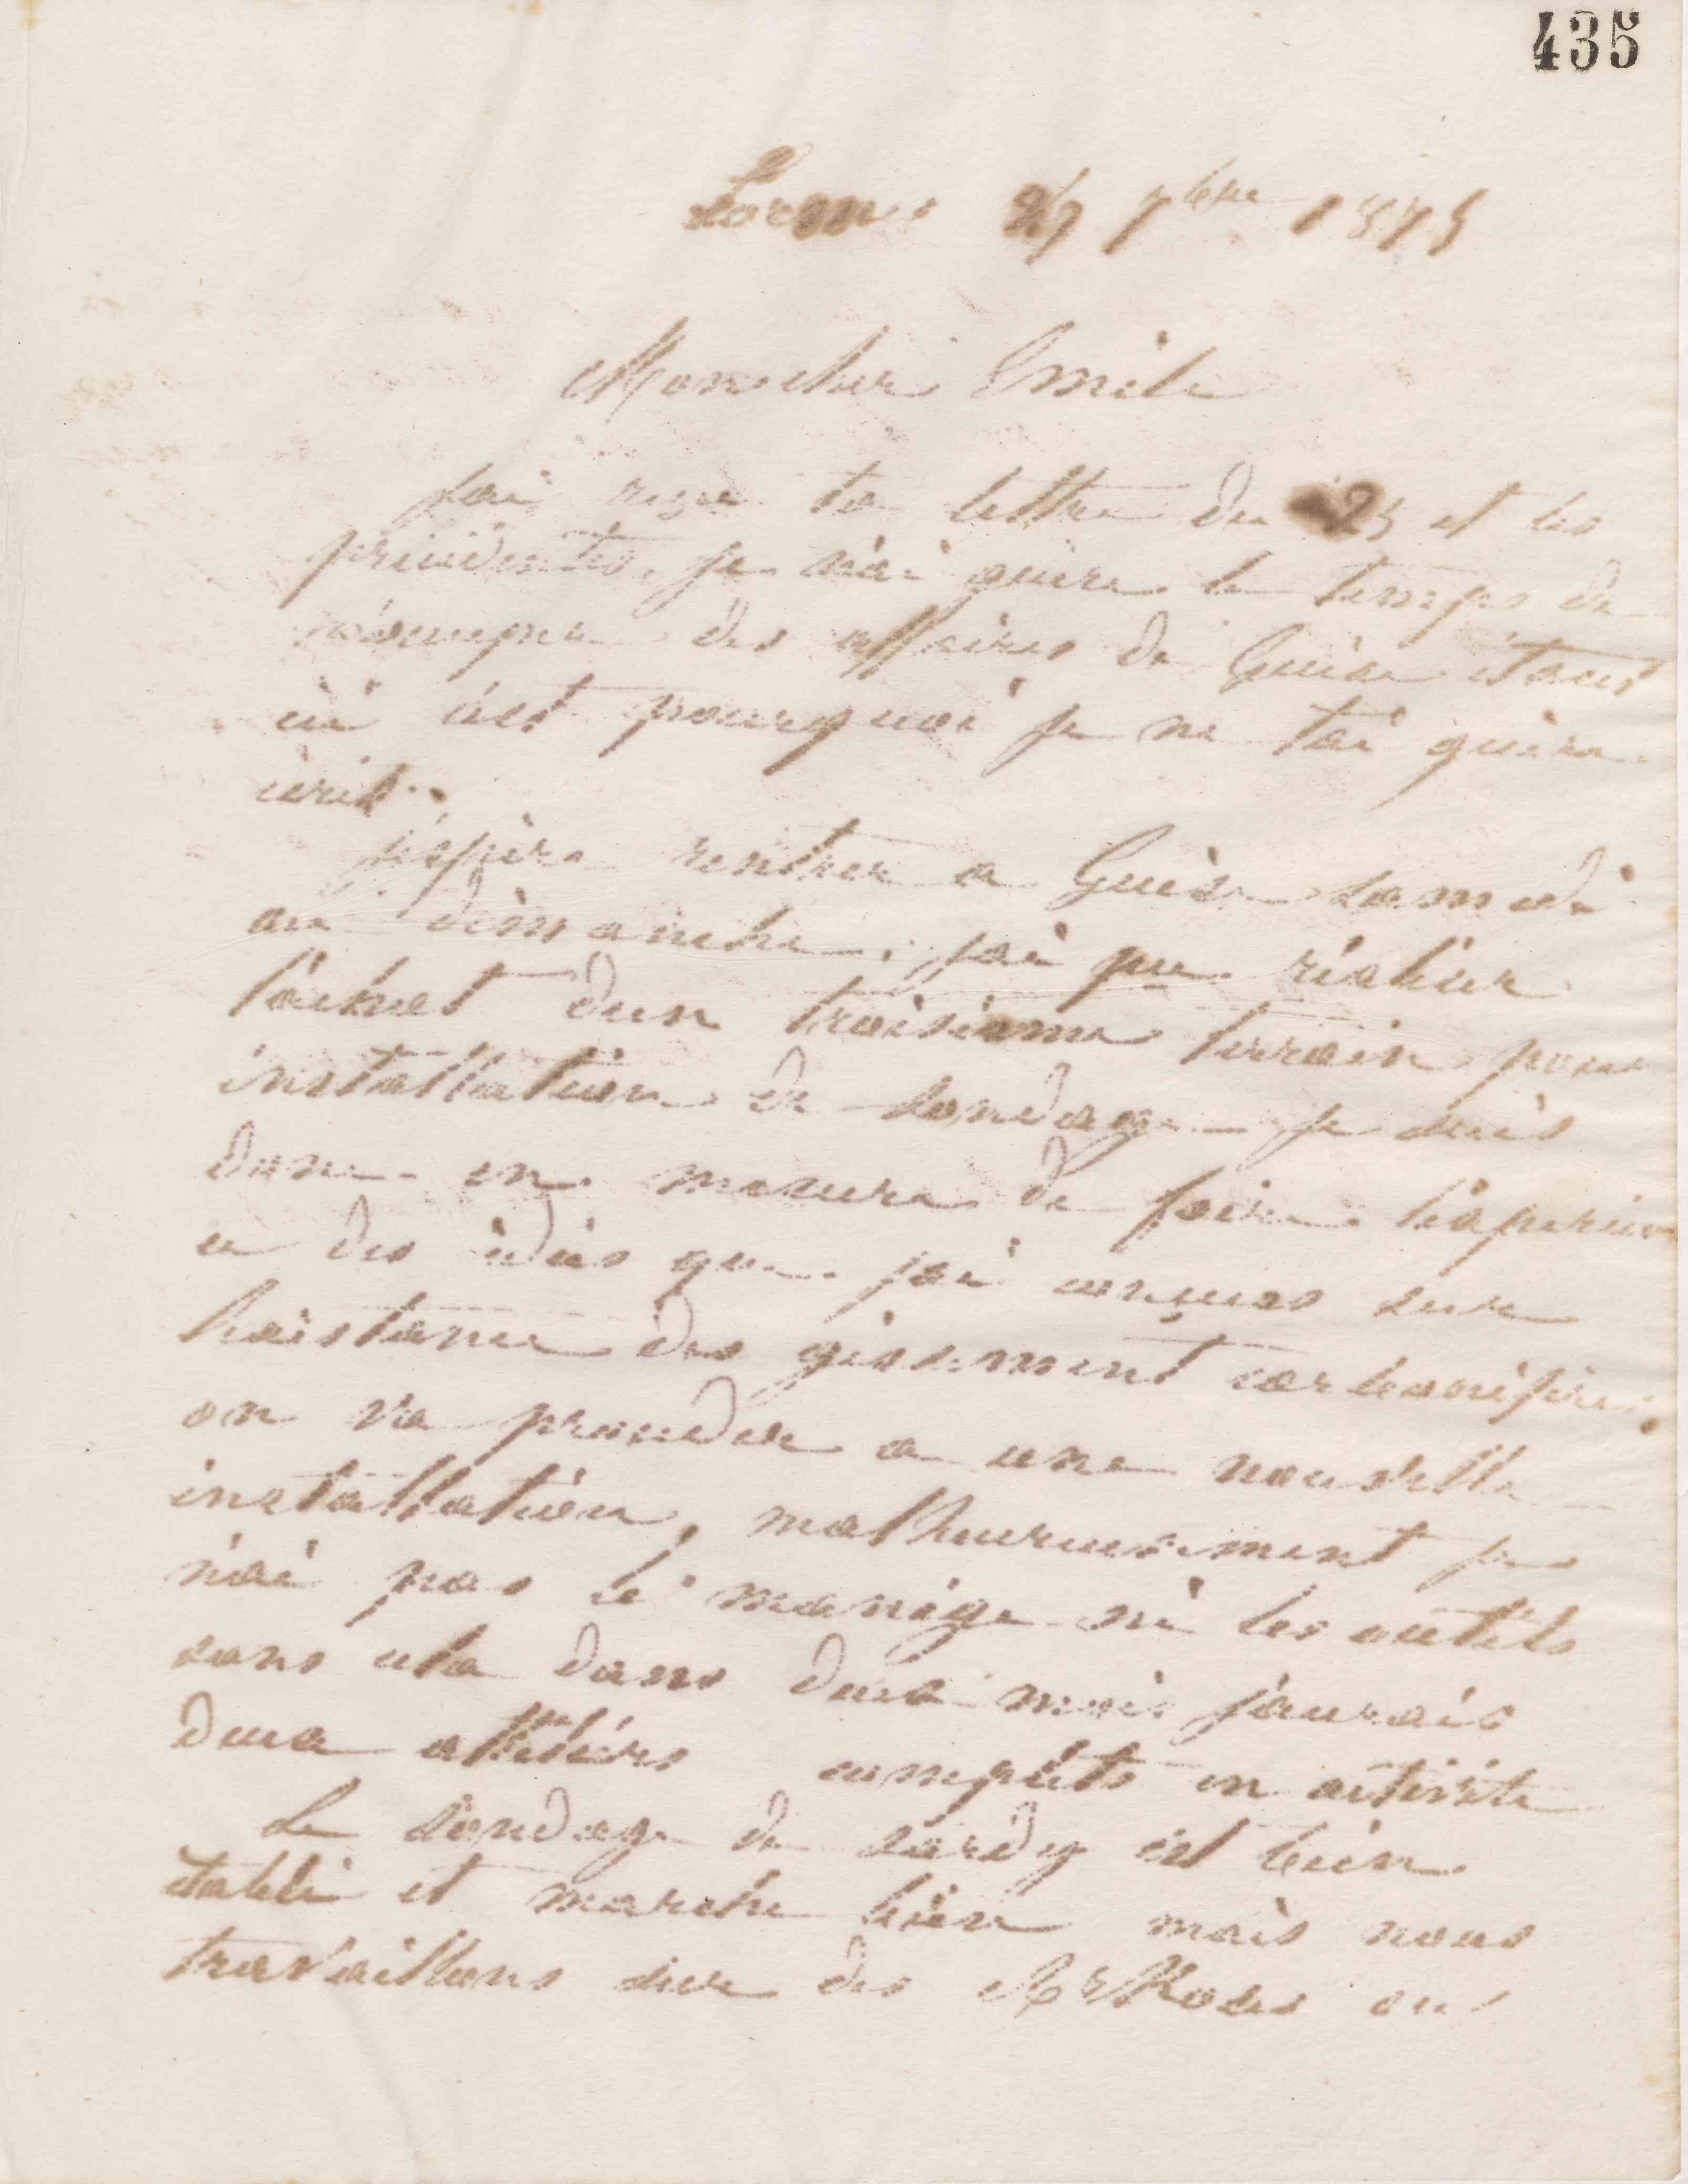 435
27 7bre 1875
Mon cher Emile
J'ai reçu ta lettre du 25 et les
précédentes. Je n'ai guère le temps de
m'occuper des affaires de Guise étant
ici c'est pourquoi je ne t'ai guère
écrit.
J'espère rentrer a Guise samedi
ou dimanche. j'ai pu réaliser
l'achat d'un troisieme terrain pour
installation de sondage je suis
donc en mesure de faire l'experien
ce des idées que j'ai conçues sur
l'existance des gissement carbonifères,
on va proceder a une nouvelle
installation, malheureusement je
n'ai pas le manège ni les outils
sans cela dans deux mois j'aurais
deux atteliers complets en activité
Le sondage de Sardy est bien
établi et marche bien mais nous
travaillons sur des Arkoses ou